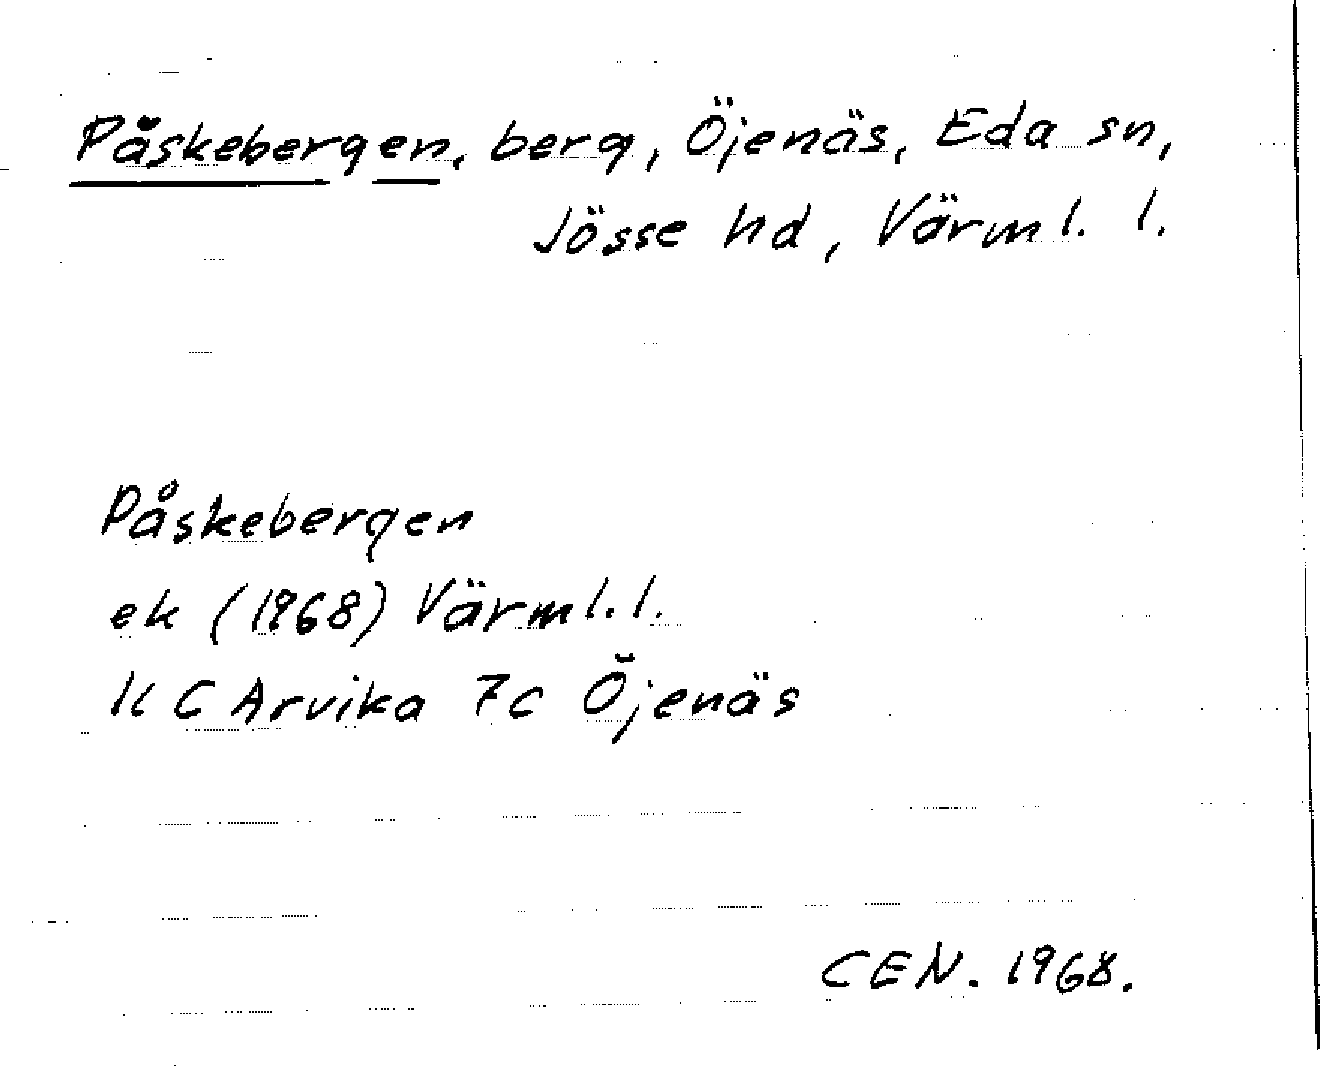 Påskebergen, berg, Öjenäs, Eda sn,
Jösse hd, Värml. l.
Påskebergen
ek (1968) Värml. l.
11 C Arvika 7c Öjenäs
CEN. 1968.